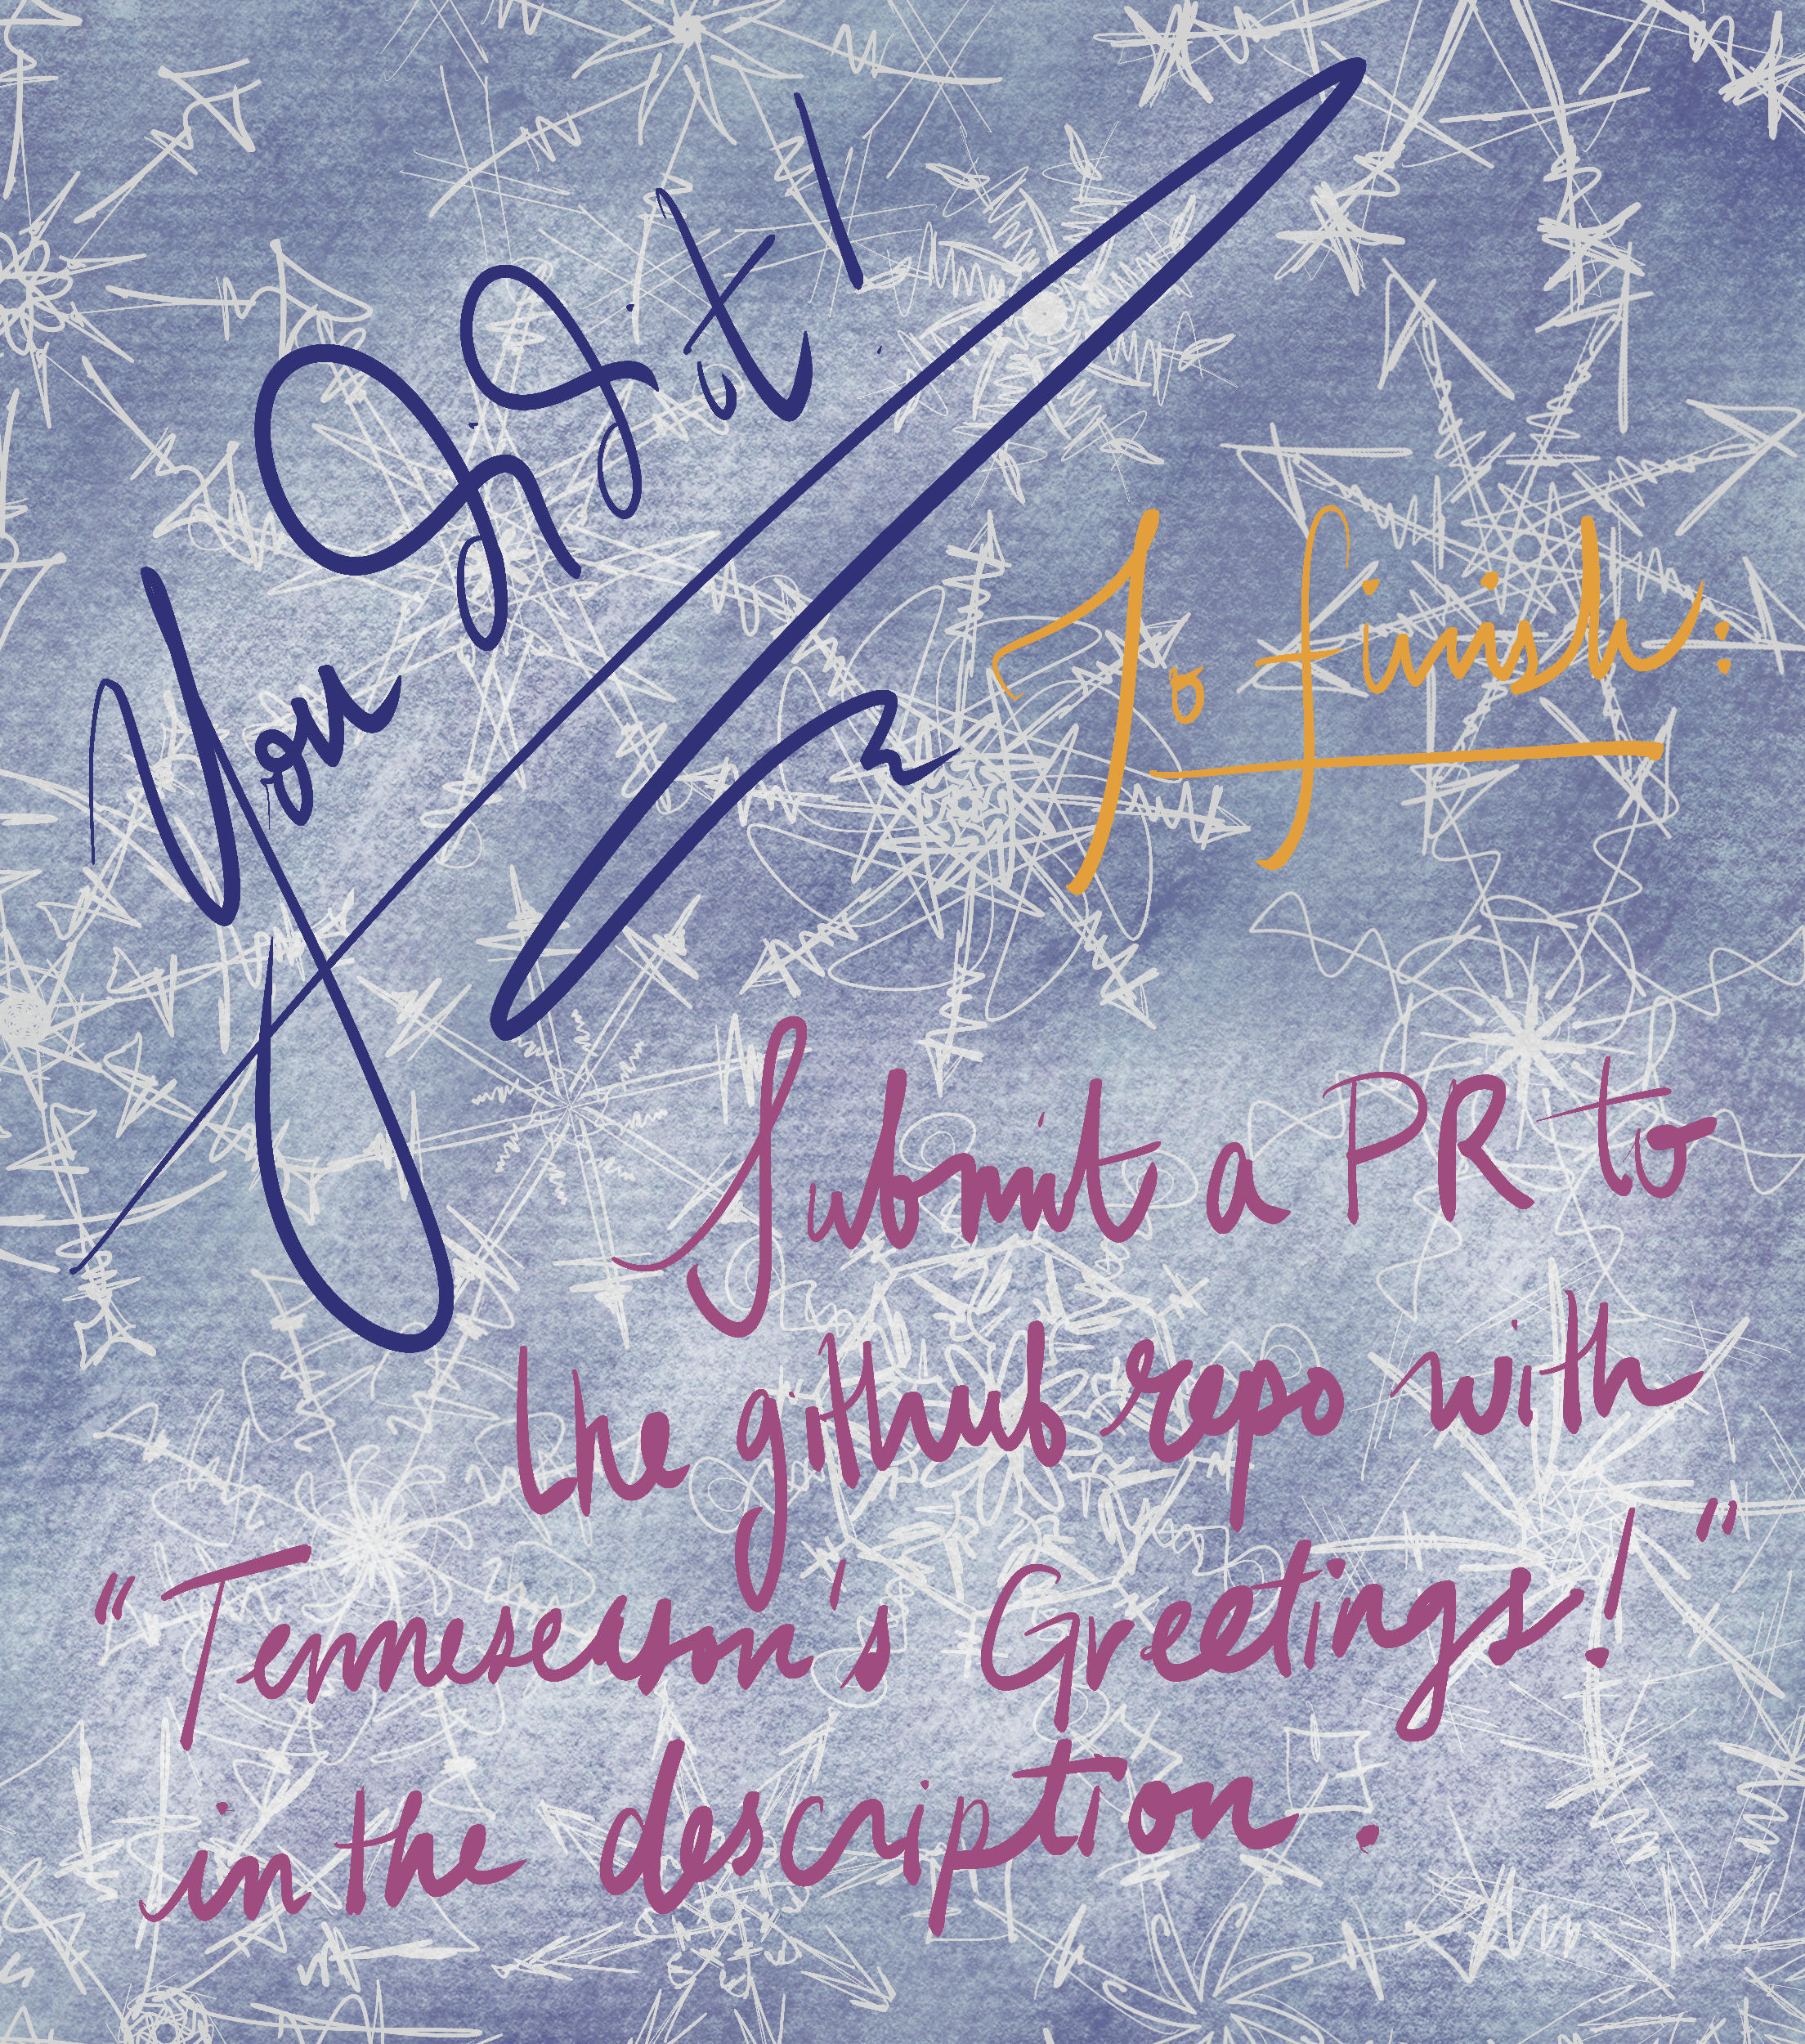 You Did it!
To finish:
Submit a PR to
the github repo with
“Tenneseason's Greetings!”
in the description.